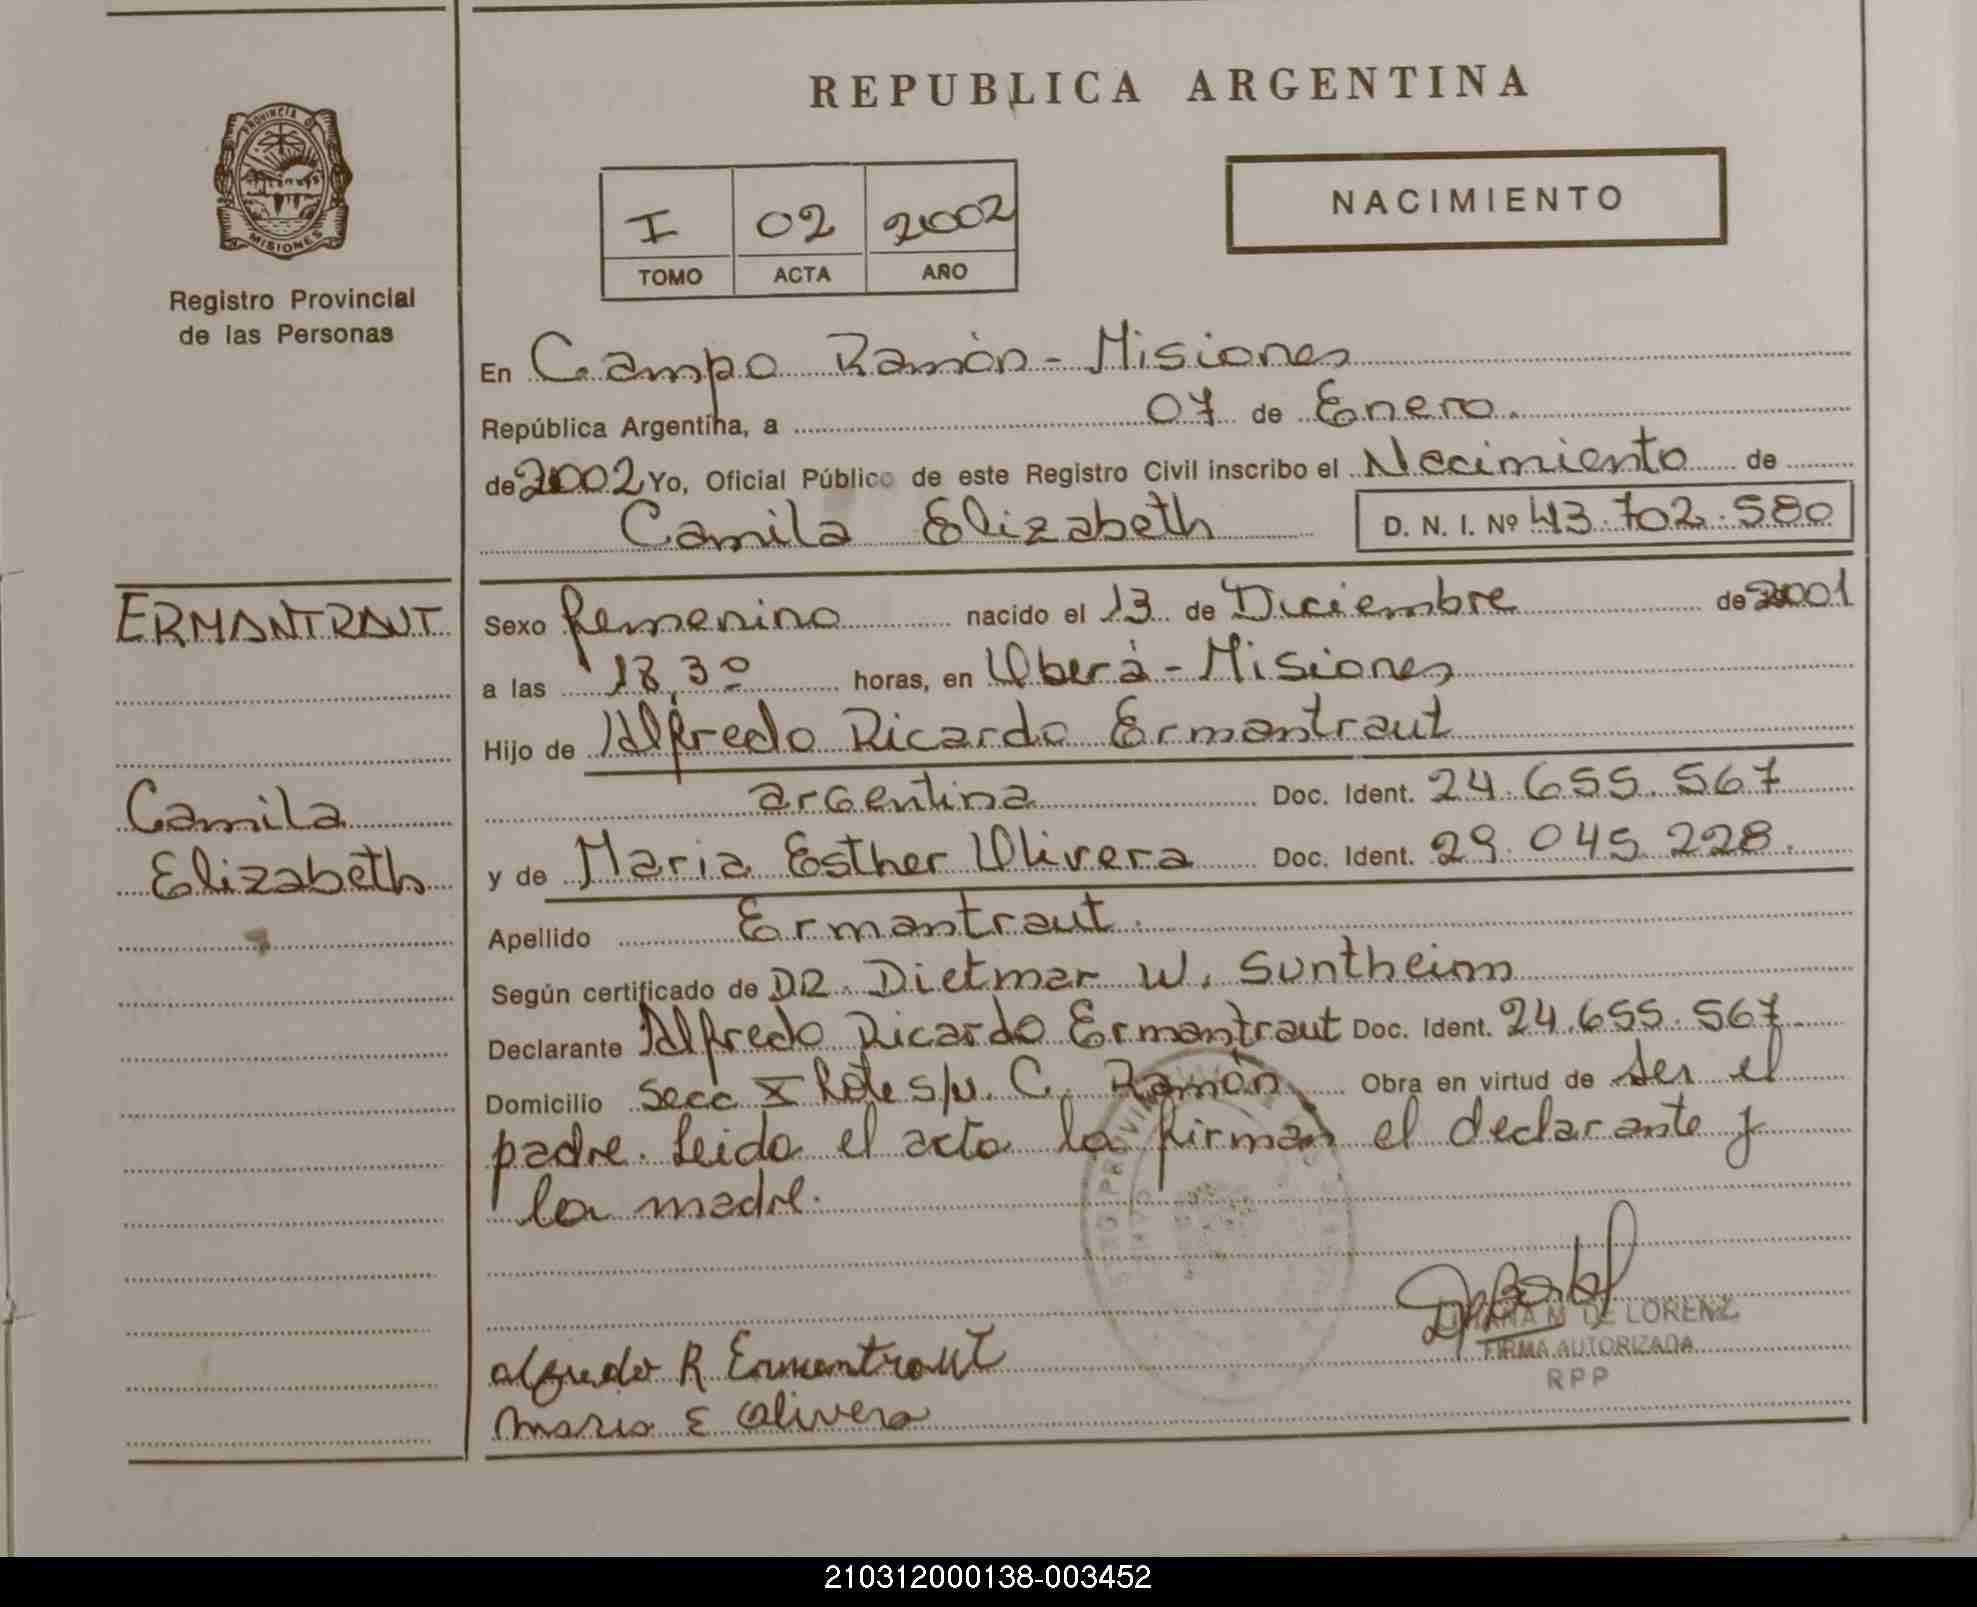 REPUBLICA ARGENTINA
PROVINCIA D
MISIONES
Registro Provincial
de las Personas
I 02 2002
TOMO ACTA AÑO
NACIMIENTO
En Campo Ramón - Misiones
República Argentina, a 07 de Enero.
de 2002 Yo, Oficial Público de este Registro Civil inscribo el Nacimiento de
Camila Elizabeth D. N. I. Nº 43.702.580
ERMANTRAUT
Camila
Elizabeth
Sexo femenino nacido el 13 de Diciembre de 2001
a las 18,30 horas, en Oberá - Misiones
Hijo de Alfredo Ricardo Ermantraut
argentina Doc. Ident. 24.655.567
y de Maria Esther Olivera Doc. Ident. 29.045.228.
Apellido Ermantraut.
Según certificado de DR. Dietmar W. Suntheim
Declarante Alfredo Ricardo Ermantraut Doc. Ident. 24.655.567
Domicilio Secc X lote s/n. C. Ramón Obra en virtud de ser el
padre. Leido el acta la firman el declarante y
la madre.
M DE LORENZ
FIRMA AUTORIZADA
RPP
alfredo R Ermantraut
Maria E Olivera
210312000138-003452